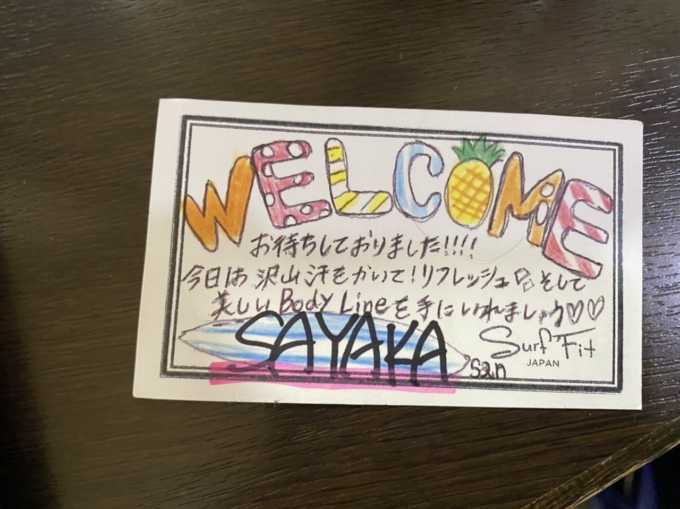 WELCOME
お待ちしておりました!!!!
今日は沢山汗をかいて!リフレッシュ そして
美しいBody Lineを手にいれましょう♡♡
SAYAKA san
Surf Fit
JAPAN